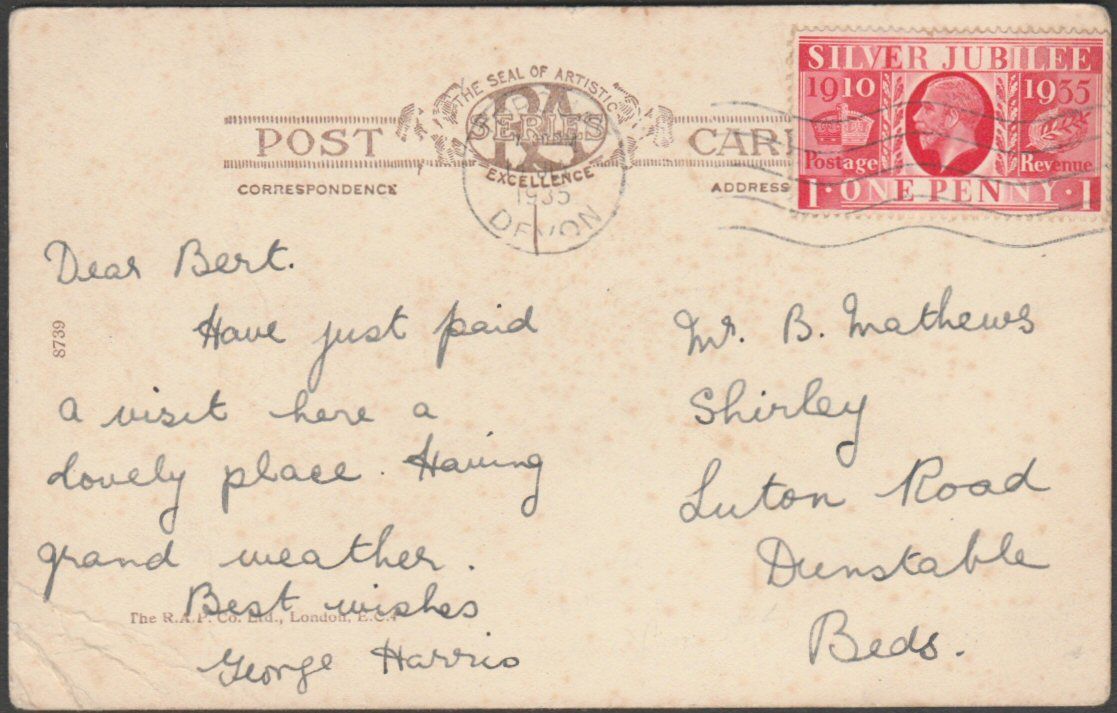 THE SEAL OF ARTISTIC
SERIES
EXCELLENCE
POST CARD
CORRESPONDENCE
ADDRESS
1935
DEVON
SILVER JUBILEE
1910 1935
Postage Revenue
1 · ONE PENNY · 1
Dear Bert.
Have just paid
a visit here a
lovely place. Having
grand weather.
Best wishes
George Harris
8739
The R.A.P. Co. Ltd., London, E.C.4
Mr. B. Mathews
Shirley
Luton Road
Dunstable
Beds.